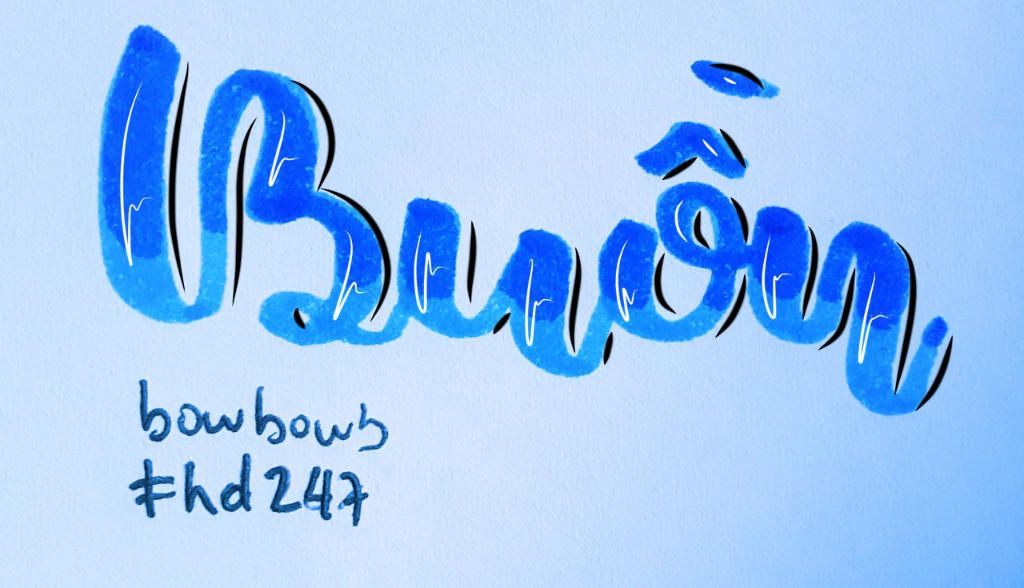 Buồn
bowbows
#hd247